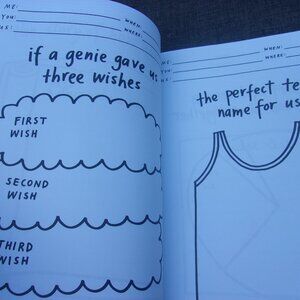 ME:
WHEN:
YOU:
WHERE:
US:
if a genie gave us
three wishes
FIRST
WISH
SECOND
WISH
THIRD
WISH
WHEN:
WHERE:
the perfect
name for us